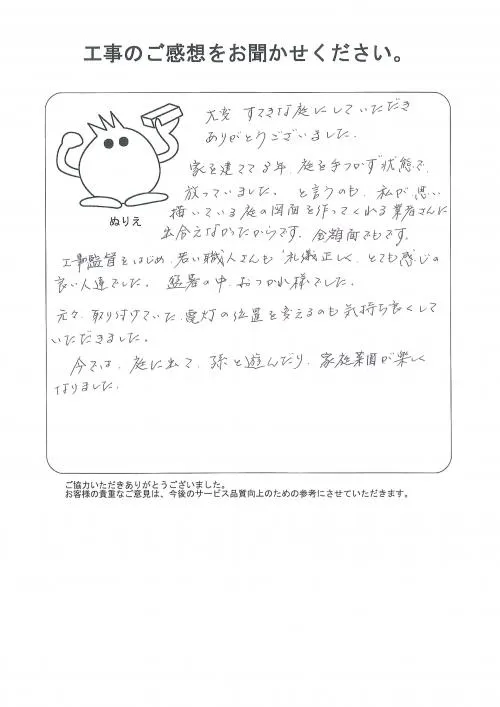 工事のご感想をお聞かせください。
大変 すてきな庭にしていただき
ありがとうございました。
家を建てて8年、庭を手つかず状態で、
放っていました。 と言うのも、私が思い
描いている庭の図面を作ってくれる業者さんに
出会えなかったからです。金額面でもです。
ぬりえ
工事監督をはじめ、若い職人さんも、礼儀正しく、とても感じの
良い人達でした。 猛暑の中、おつかれ様でした。
元々、取り付けていた、電灯の位置を変えるのも気持ち良くして
いただきました。
今では、庭に出て、孫と遊んだり、家庭菜園が楽しく
なりました。
ご協力いただきありがとうございました。
お客様の貴重なご意見は、今後のサービス品質向上のための参考にさせていただきます。